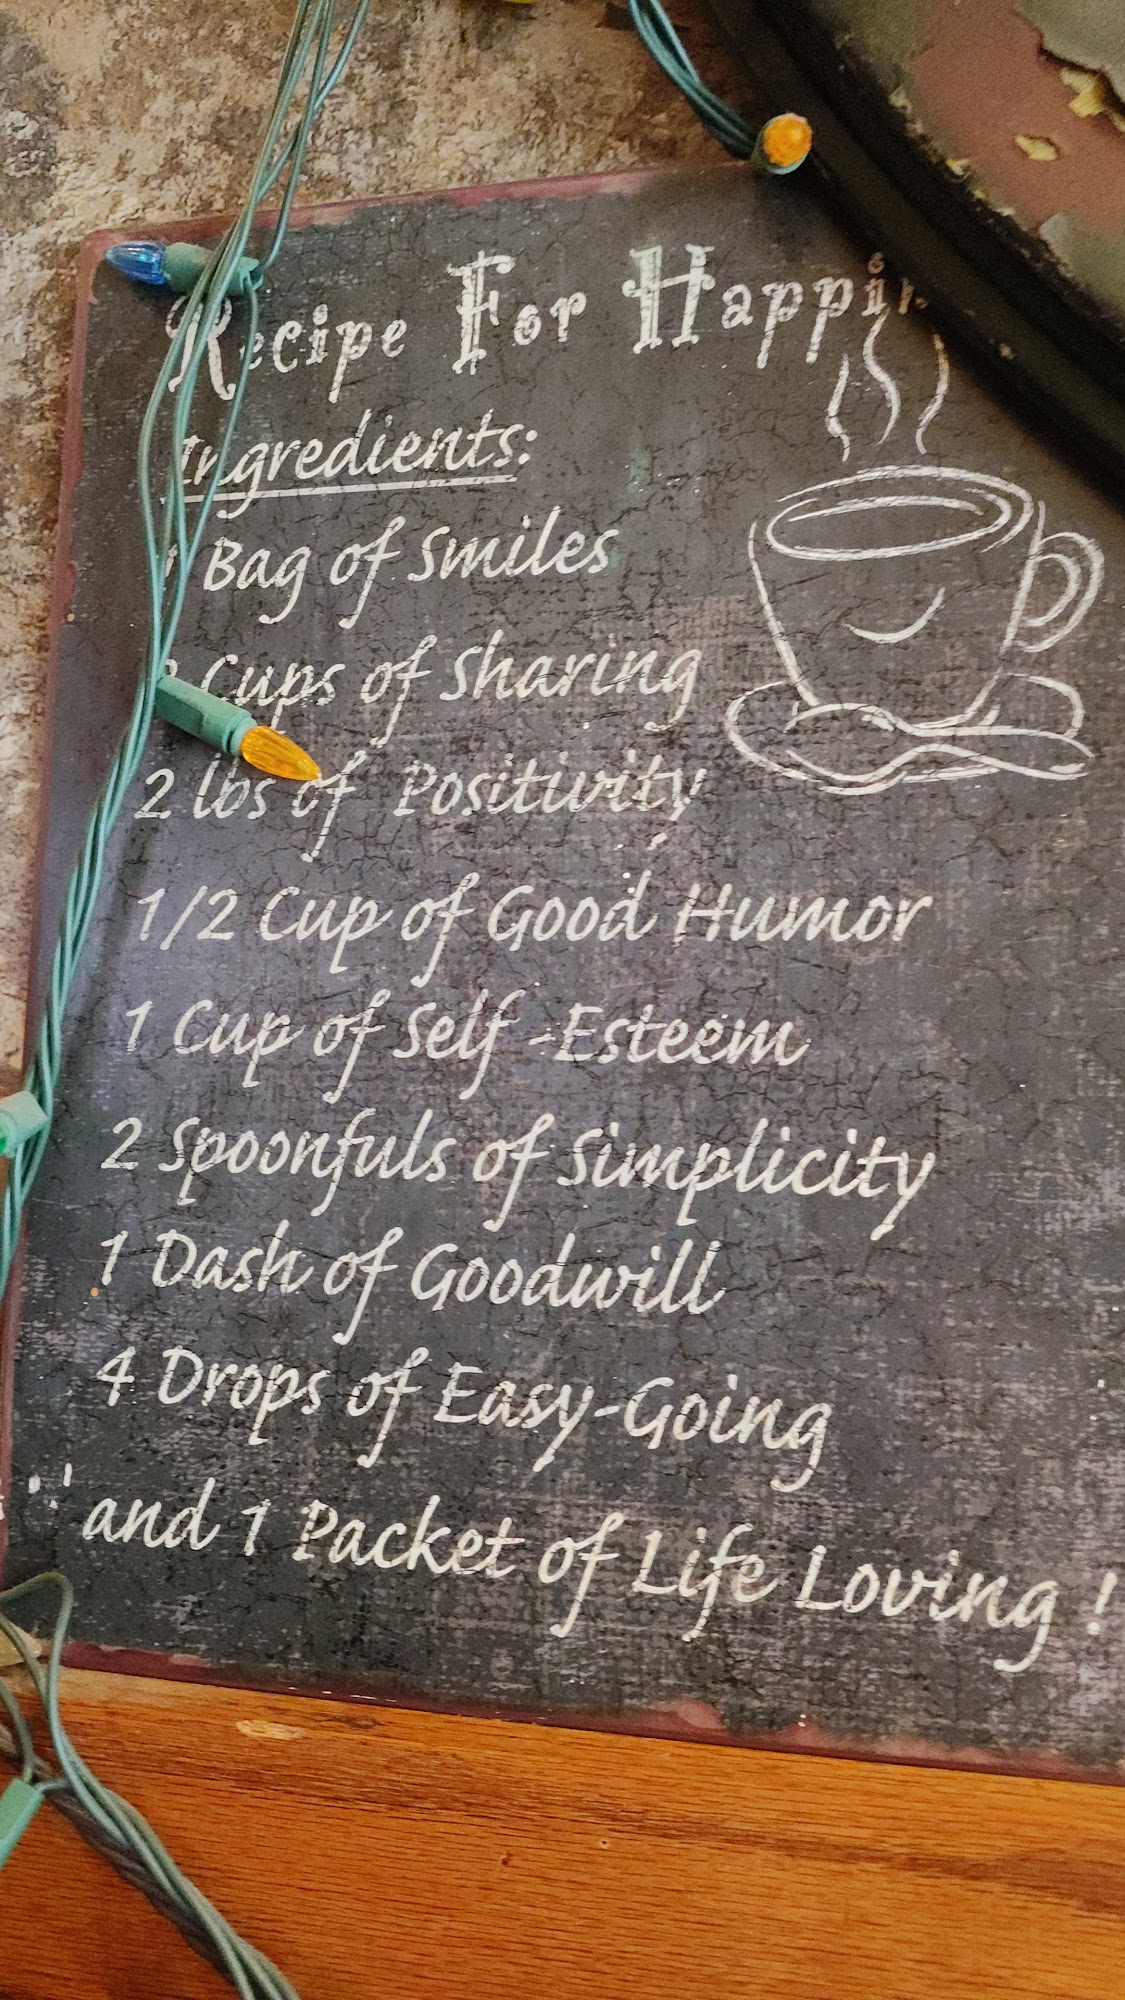 Recipe For Happin
Ingredients:
1 Bag of Smiles
Cups of Sharing
2 lbs of Positivity
1/2 Cup of Good Humor
1 Cup of Self-Esteem
2 Spoonfuls of Simplicity
1 Dash of Goodwill
4 Drops of Easy-Going
and 1 Packet of Life Loving !